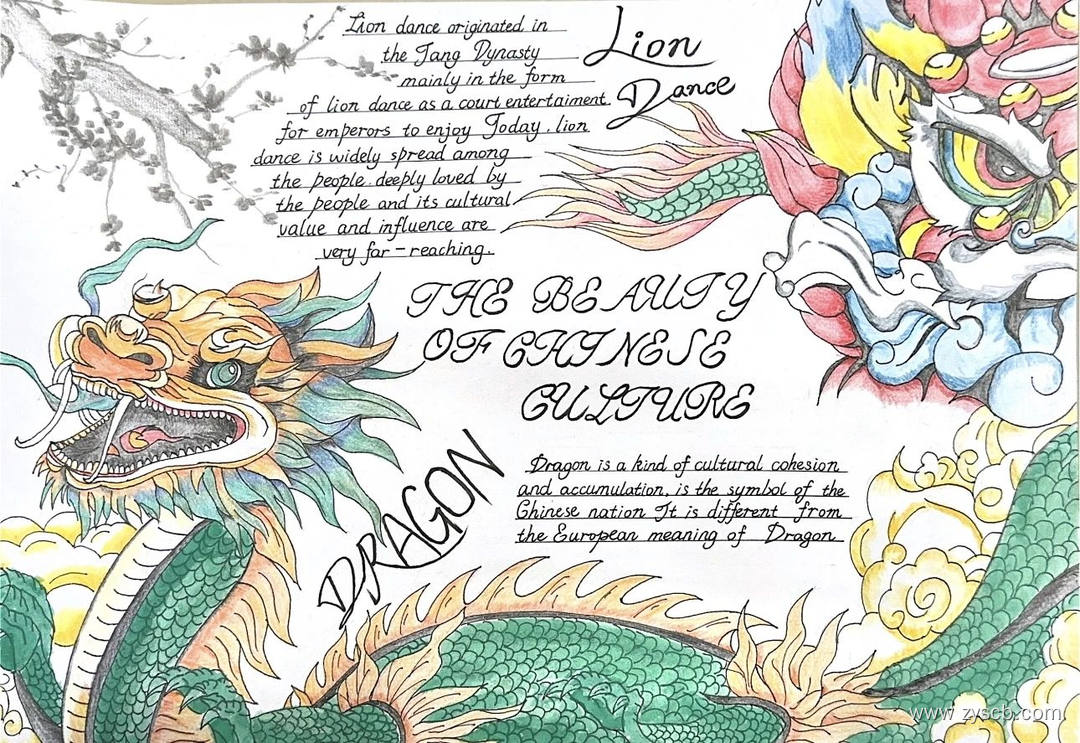 Lion dance originated in
the Tang Dynasty
mainly in the form
of lion dance as a court entertaiment
for emperors to enjoy Today, lion
dance is widely spread among
the people deeply loved by
the people and its cultural
value and influence are
very far-reaching.
Lion
Dance
THE BEAUTY
OF CHINESE
CULTURE
DRAGON
Dragon is a kind of cultural cohesion
and accumulation, is the symbol of the
Chinese nation It is different from
the European meaning of Dragon
www.zyscb.com